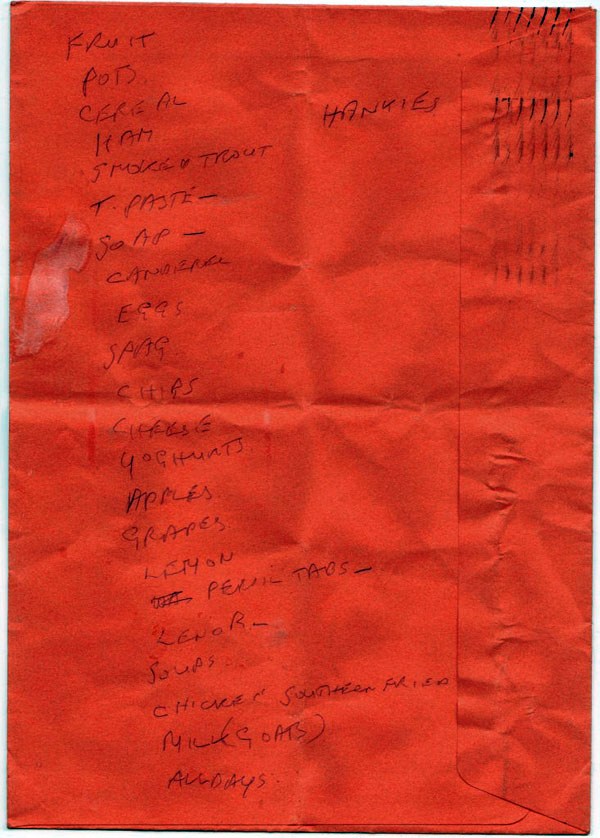 FRUIT
POTS.
CEREAL
HANKIES
HAM
SMOKED TROUT
T. PASTE —
SOAP —
CANDEREL
EGGS
SPAG.
CHIPS
CHEESE
YOGHURTS.
APPLES.
GRAPES
LEMON
PERSIL TABS —
LENOR —
SOUPS.
CHICKEN SOUTHERN FRIED
MILK (GOATS)
ALLDAYS.